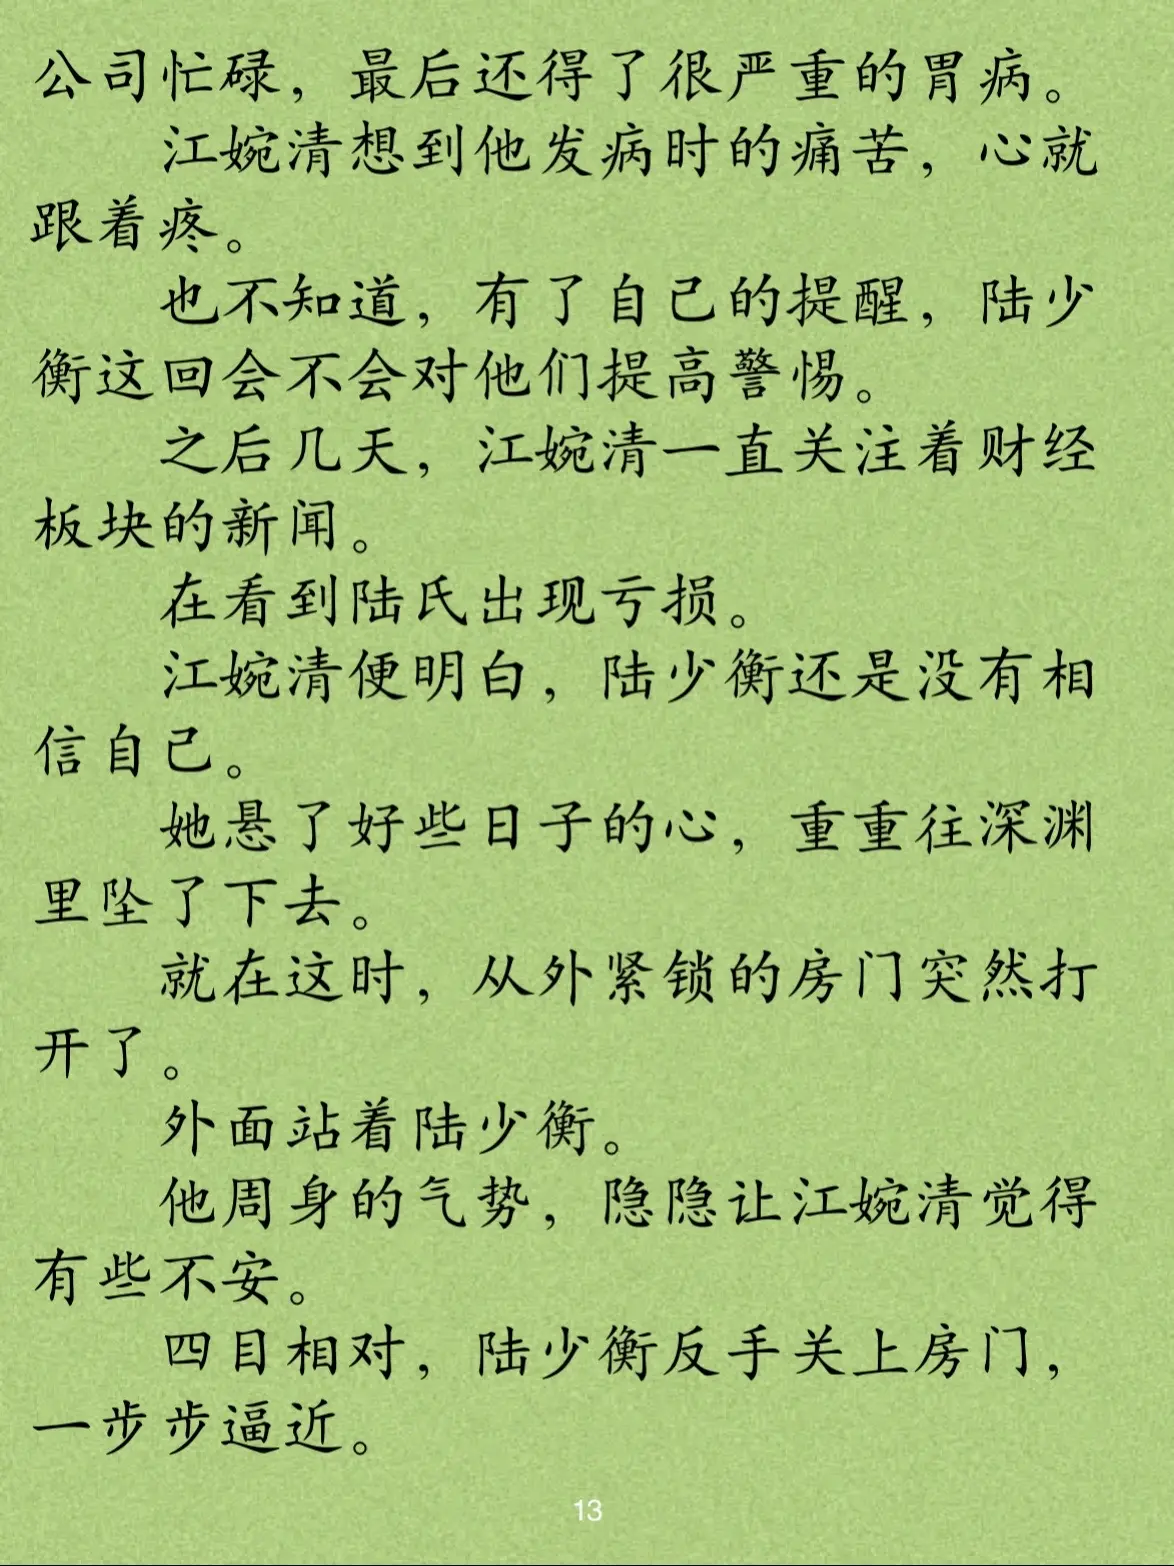 公司忙碌，最后还得了很严重的胃病。
江婉清想到他发病时的痛苦，心就
跟着疼。
也不知道，有了自己的提醒，陆少
衡这回会不会对他们提高警惕。
之后几天，江婉清一直关注着财经
板块的新闻。
在看到陆氏出现亏损。
江婉清便明白，陆少衡还是没有相
信自己。
她悬了好些日子的心，重重往深渊
里坠了下去。
就在这时，从外紧锁的房门突然打
开了。
外面站着陆少衡。
他周身的气势，隐隐让江婉清觉得
有些不安。
四目相对，陆少衡反手关上房门，
一步步逼近。
13